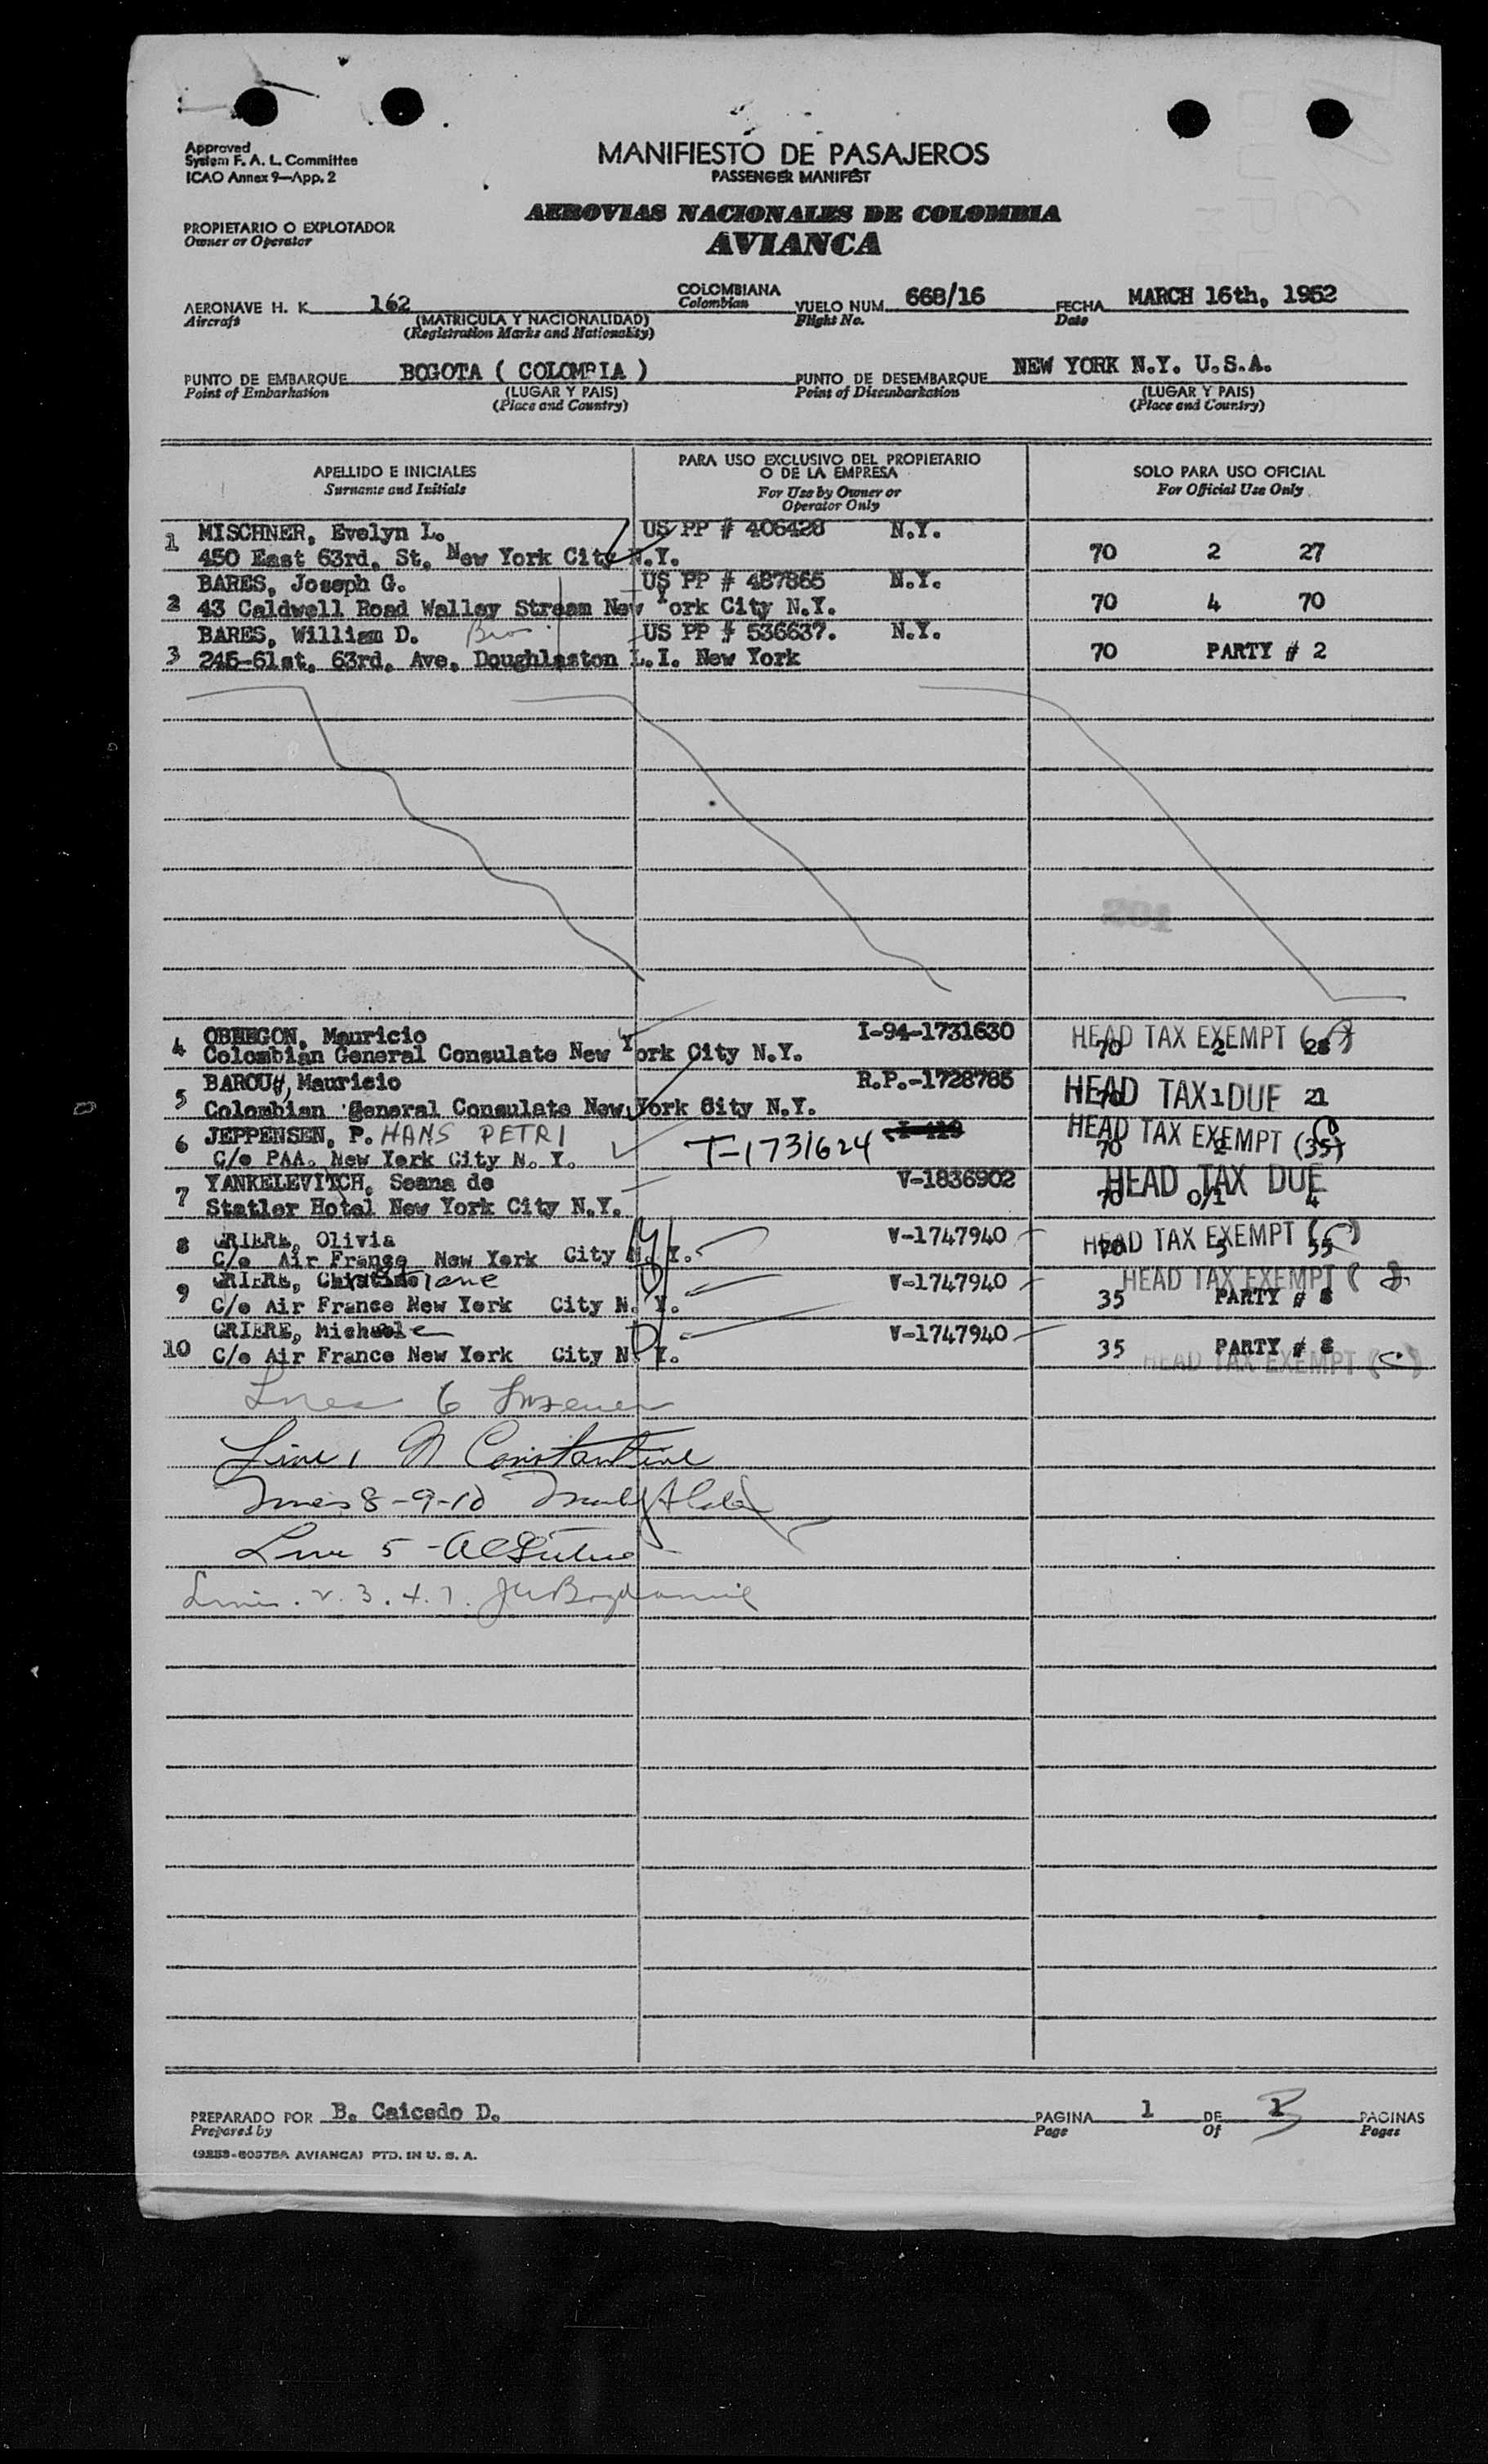 Approved
System F. A. L. Committee
ICAO Annex 9—App. 2
MANIFIESTO DE PASAJEROS
PASSENGER MANIFEST
PROPIETARIO O EXPLOTADOR
Owner or Operator
AEROVIAS NACIONALES DE COLOMBIA
AVIANCA
AERONAVE H. K. 162 COLOMBIANA VUELO NUM. 668/16 FECHA MARCH 16th, 1952
Aircraft (MATRICULA Y NACIONALIDAD) Colombian Flight No. Date
(Registration Marks and Nationality)
PUNTO DE EMBARQUE BOGOTA ( COLOMBIA ) PUNTO DE DESEMBARQUE NEW YORK N.Y. U.S.A.
Point of Embarkation (LUGAR Y PAIS) Point of Disembarkation (LUGAR Y PAIS)
(Place and Country) (Place and Country)
APELLIDO E INICIALES
Surname and Initials
PARA USO EXCLUSIVO DEL PROPIETARIO
O DE LA EMPRESA
For Use by Owner or
Operator Only
SOLO PARA USO OFICIAL
For Official Use Only
1 MISCHNER, Evelyn L. US PP # 406428 N.Y.
450 East 63rd. St. New York City N.Y. 70 2 27
BARES, Joseph G. US PP # 487865 N.Y.
2 43 Caldwell Road Walley Stream New York City N.Y. 70 4 70
BARES, William D. Bro. US PP # 536637. N.Y.
3 245-61st. 63rd. Ave. Doughlaston L.I. New York 70 PARTY # 2
201
4 OBREGON, Mauricio I-94-1731630 HEAD TAX EXEMPT
Colombian General Consulate New York City N.Y. 70 2 28
5 BAROUH, Mauricio R.P.-1728785 HEAD TAX DUE
Colombian General Consulate New York City N.Y. 70 1 21
6 JEPPENSEN, P. HANS PETRI T-1731624 HEAD TAX EXEMPT
C/o PAA. New York City N. Y. 70 2 35
7 YANKELEVITCH, Seana de V-1836902 HEAD TAX DUE
Statler Hotel New York City N.Y. 70 0/1 4
8 GRIERE, Olivia V-1747940 HEAD TAX EXEMPT
C/o Air France New York City N. Y. 70 3 55
9 GRIERE, V-1747940 HEAD TAX EXEMPT
C/o Air France New York City N. Y. 35 PARTY # 8
10 GRIERE, Michele V-1747940
C/o Air France New York City N. Y. 35 PARTY # 8
HEAD TAX EXEMPT
6
Line 1 Constantine
Lines 8-9-10
Line 5 -
Lines. 2. 3. 4. 7.
PREPARADO POR B. Caicedo D. PAGINA 1 DE 3 PAGINAS
Prepared by Page Of Pages
AVIANCA) PTD. IN U. S. A.